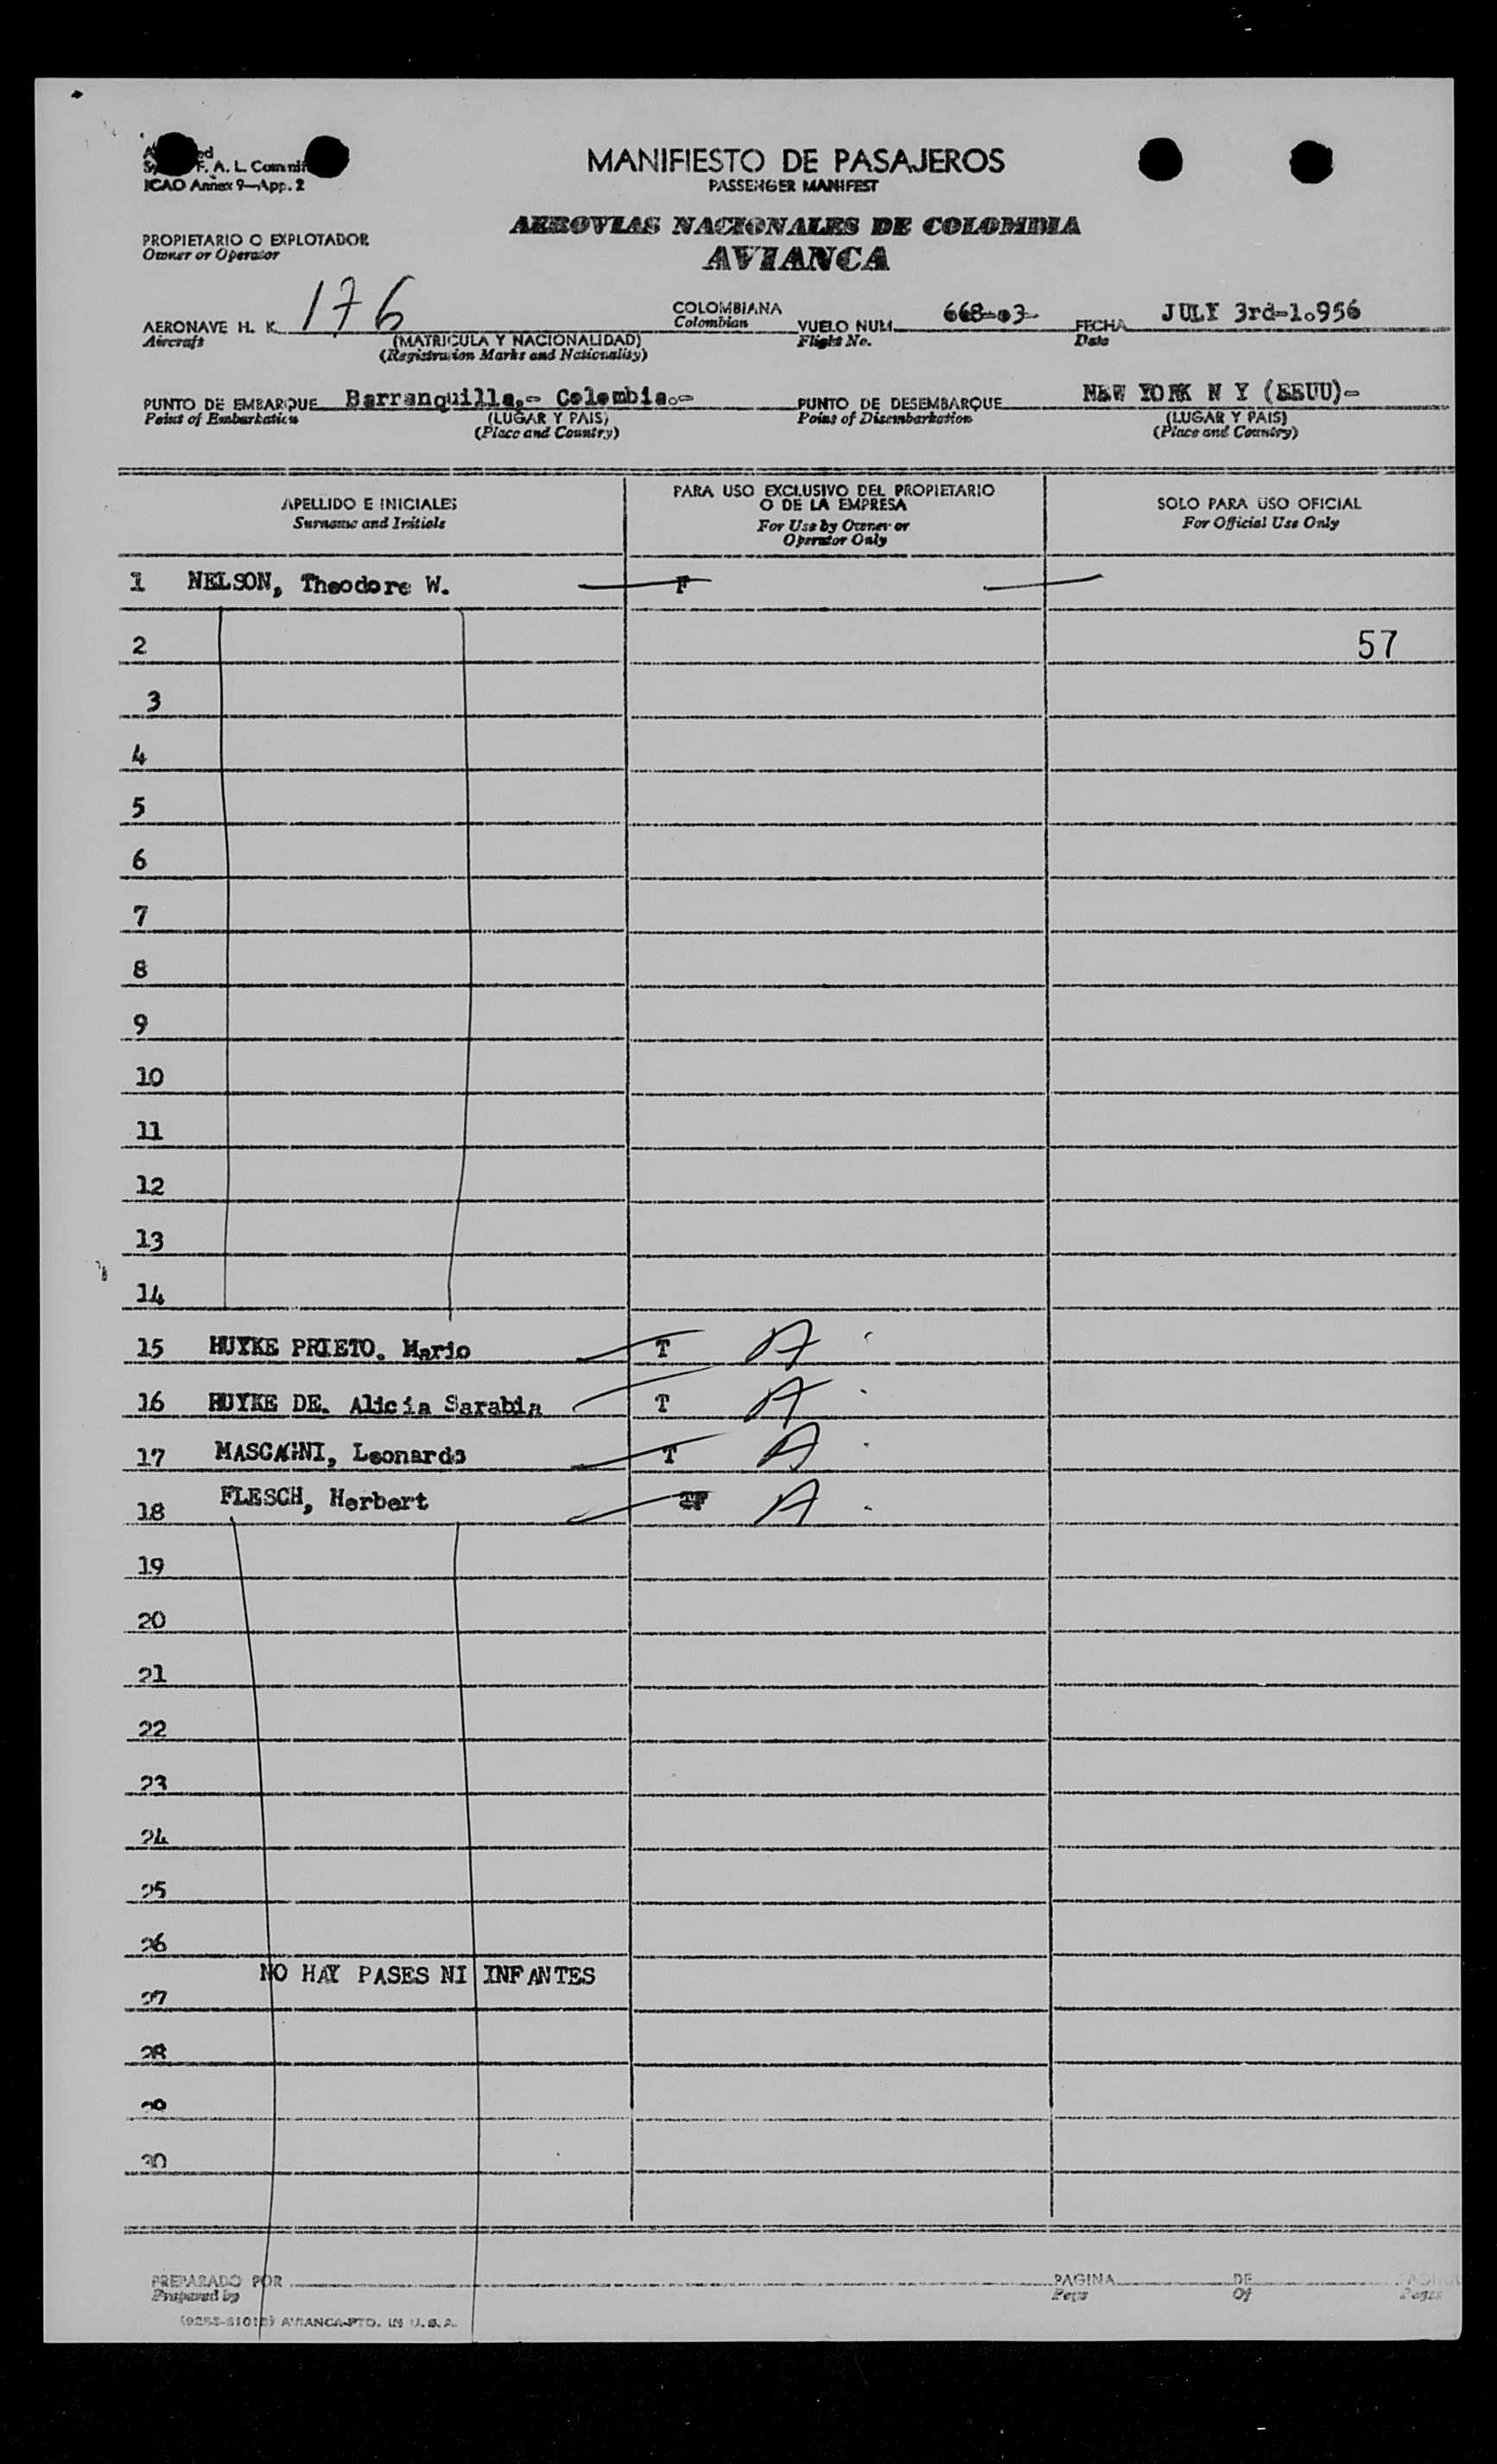 MANIFIESTO DE PASAJEROS
PASSENGER MANIFEST
F. A. L. Commi
ICAO Annex 9—App. 2
AEROVIAS NACIONALES DE COLOMBIA
AVIANCA
PROPIETARIO O EXPLOTADOR
Owner or Operator
AERONAVE H. K. 176 COLOMBIANA VUELO NUM. 668-03- FECHA JULY 3rd-1.956
Aircraft (MATRICULA Y NACIONALIDAD) Colombian Flight No. Date
(Registration Marks and Nationality)
PUNTO DE EMBARQUE Barranquilla,- Colombia.- PUNTO DE DESEMBARQUE NEW YORK N Y (EEUU)-
Point of Embarkation (LUGAR Y PAIS) Point of Disembarkation (LUGAR Y PAIS)
(Place and Country) (Place and Country)
APELLIDO E INICIALES
Surname and Initials
PARA USO EXCLUSIVO DEL PROPIETARIO
O DE LA EMPRESA
For Use by Owner or
Operator Only
SOLO PARA USO OFICIAL
For Official Use Only
1 NELSON, Theodore W. F
2 57
3
4
5
6
7
8
9
10
11
12
13
14
15 HUYKE PRIETO. Mario T A
16 HUYKE DE. Alicia Sarabia T A
17 MASCAGNI, Leonardo T A
18 FLESCH, Herbert A
19
20
21
22
23
24
25
26
NO HAY PASES NI INFANTES
27
28
29
30
PREPARADO POR PAGINA DE PAGINA
Prepared by Page Of Pages
AVIANCA-PTD. IN U.S.A.